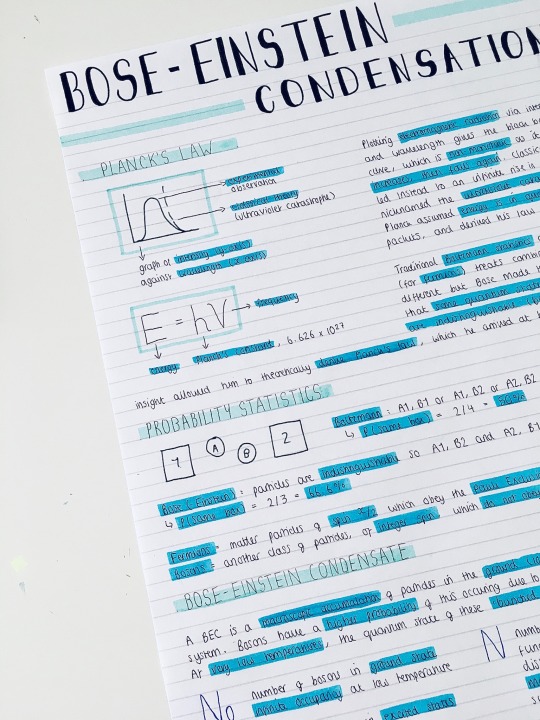 BOSE-EINSTEIN
CONDENSATION
PLANCK'S LAW
experimental
observation
classical theory
(ultraviolet catastrophe)
graph of intensity of object
against wavelength
E = hV
frequency
energy
Planck's constant, 6.626 x 10²⁷
Plotting electromagnetic radiation via inte
and wavelength gives the black b
curve, which is not monotonic as it
increases, then falls again, classic
led instead to an infinite rise i
nicknamed the ultraviolet cata
Planck assumed energy is in
packets, and derived his law
Traditional Boltzmann statistics
(for) treats combin
different but Bose made t
that some quantum states
are indistinguishable
insight allowed him to theoretically derive Planck's law, which he arrived at b
PROBABILITY STATISTICS
1 A B 2
Boltzmann: A1, B1 or A1, B2 or A2, B2
↳ P(same box) = 2/4 = 50%
Bose (Einstein): particles are indistinguishable so A1, B2 and A2, B1
↳ P(same box) = 2/3 = 66.6%
Fermions = matter particles of spin which obey the Pauli Exclus
Bosons = another class of particles, of integer spin which do not obey
BOSE-EINSTEIN CONDENSATE
A BEC is a macroscopic accumulation of particles in the ground
system. Bosons have a higher probability of this occuring due to
At very low temperatures, the quantum state of these
N₀ number of bosons in ground state
infinite occupancy at low temperature
N numb
func
dis
excited states